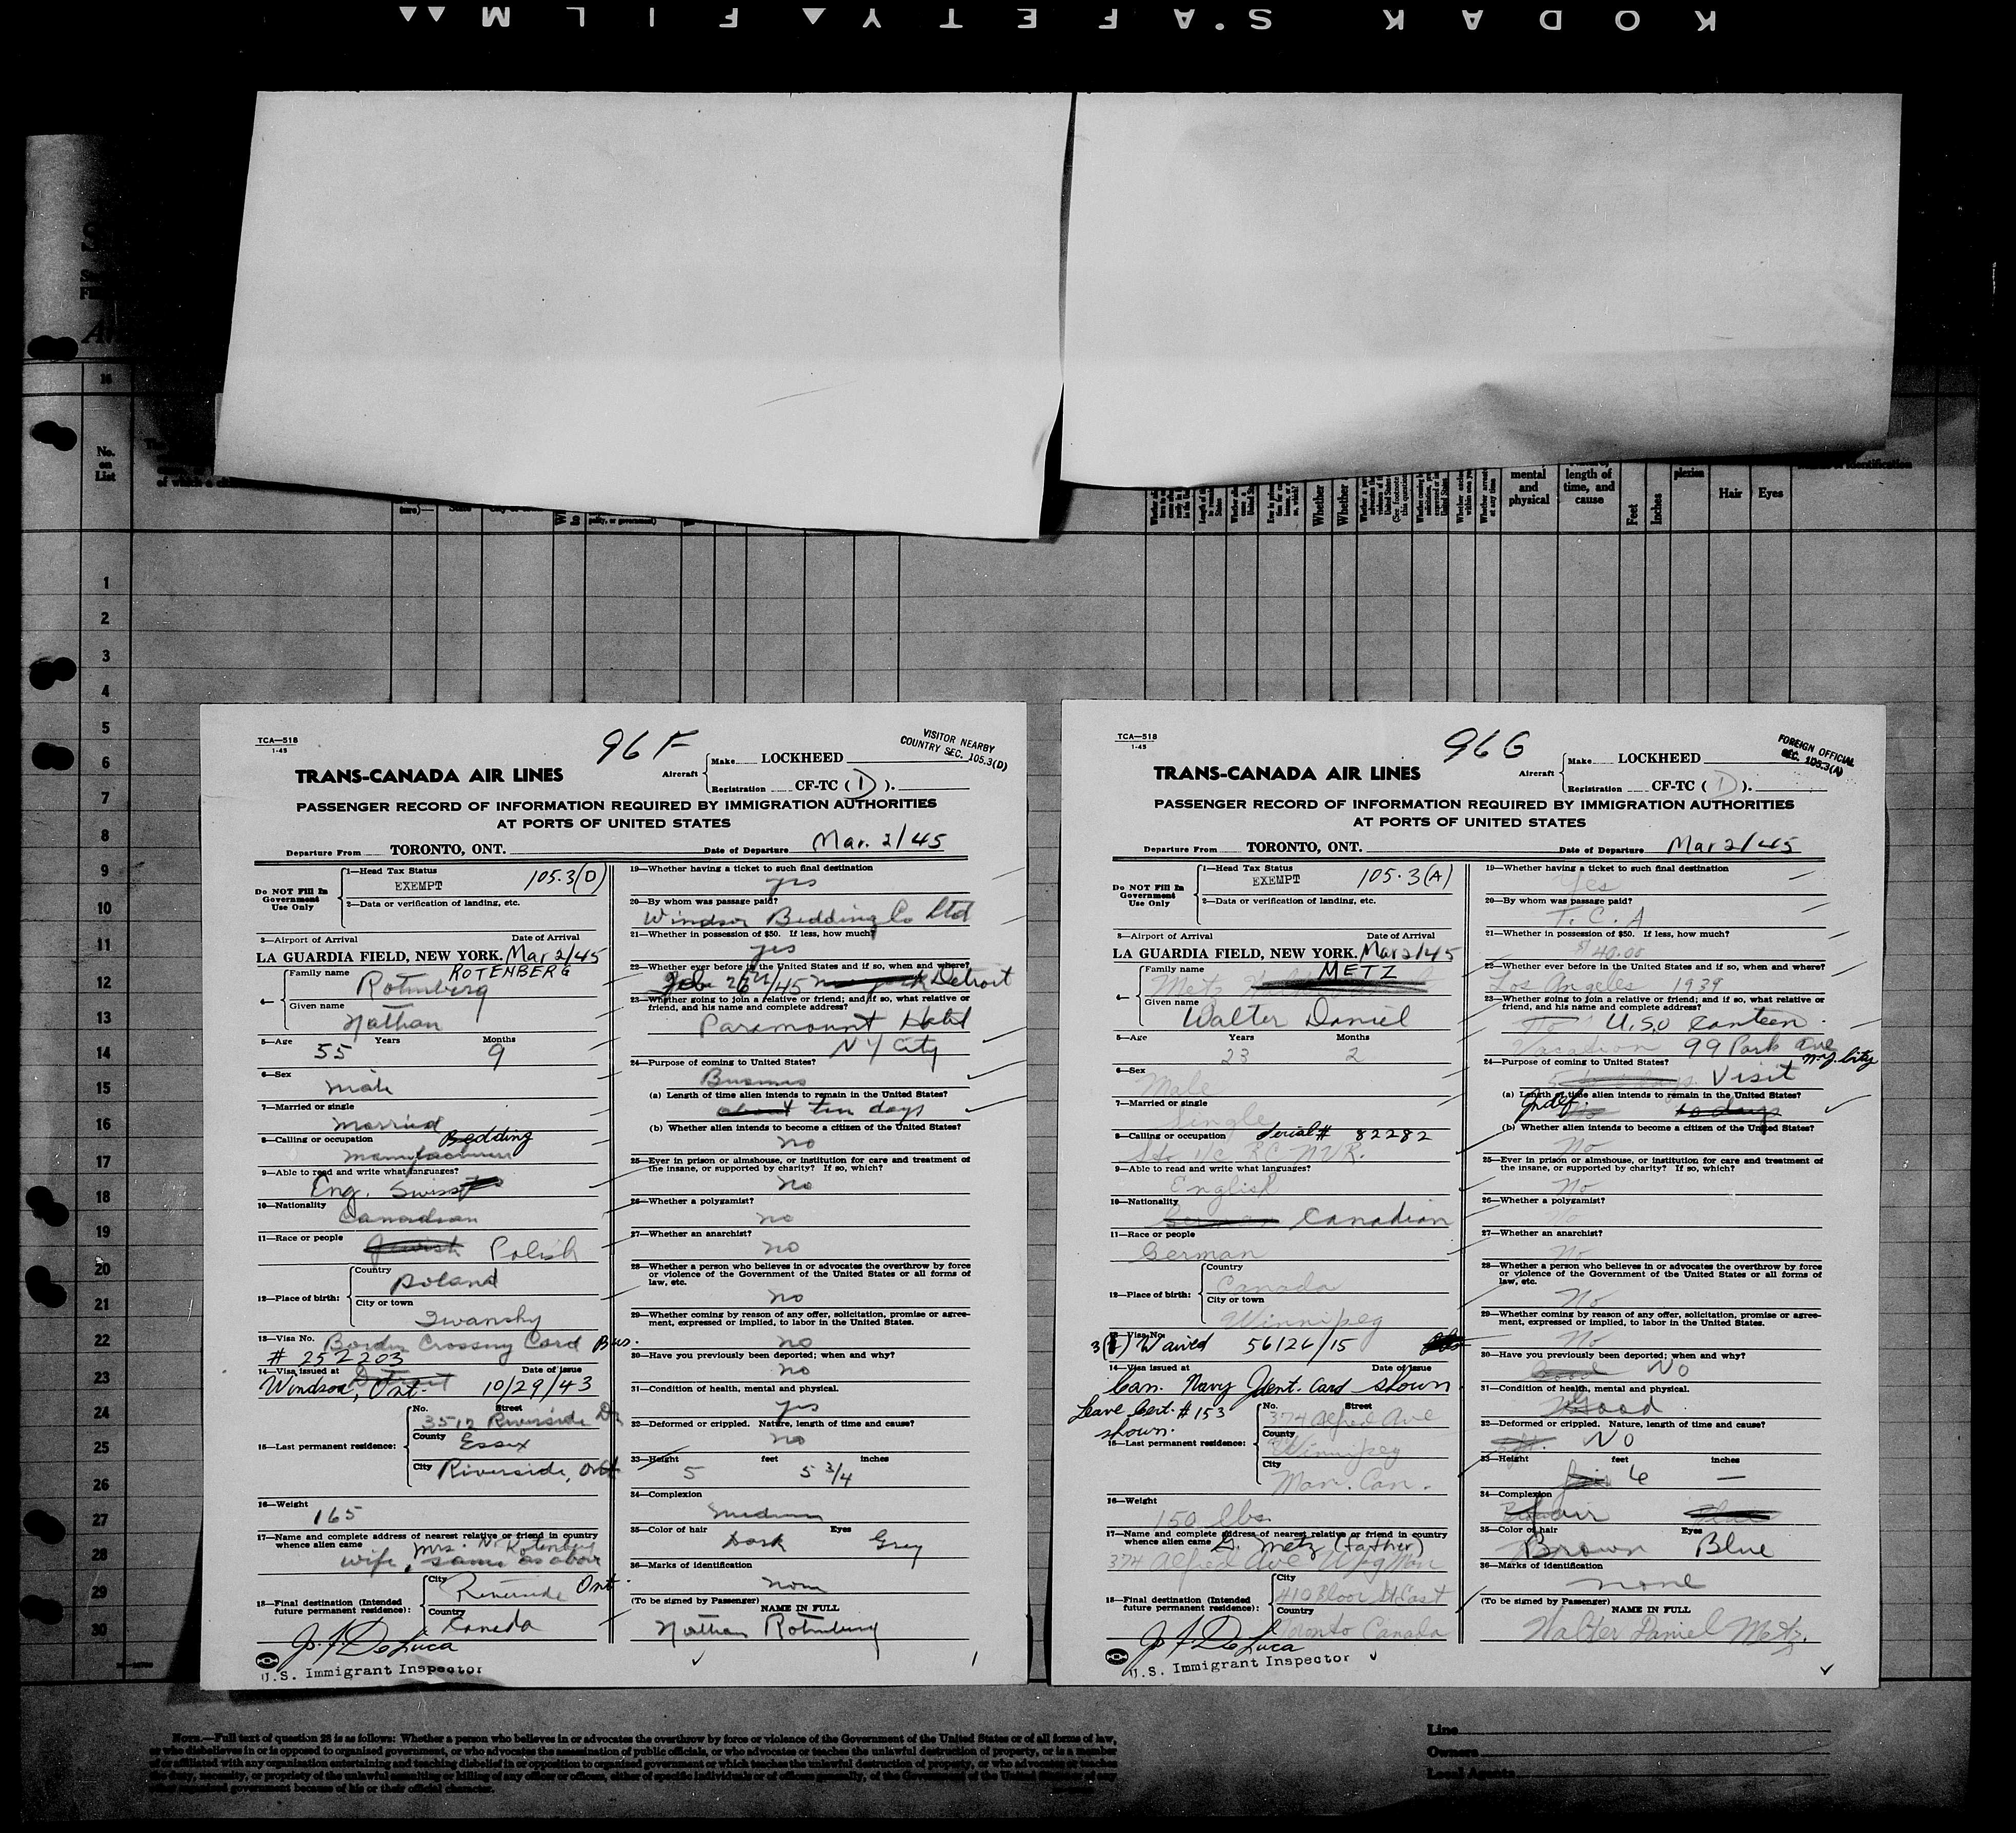 KODAK SAFETY FILM
No.
on
List
mental
and
physical
length of
time, and
cause
Feet
Inches
plexion
Hair
Eyes
1
2
3
4
5
6
7
8
9
10
11
12
13
14
15
16
17
18
19
20
21
22
23
24
25
26
27
28
29
30
TCA—518
1-45
96 F
VISITOR NEARBY
COUNTRY SEC. 105.3(D)
TRANS-CANADA AIR LINES
Aircraft
Make LOCKHEED
Registration CF-TC ( D ).
PASSENGER RECORD OF INFORMATION REQUIRED BY IMMIGRATION AUTHORITIES
AT PORTS OF UNITED STATES
Departure From TORONTO, ONT. Date of Departure Mar. 2/45
Do NOT Fill In
Government
Use Only
1—Head Tax Status
EXEMPT 105.3(D)
2—Data or verification of landing, etc.
3—Airport of Arrival Date of Arrival
LA GUARDIA FIELD, NEW YORK. Mar 2/45
4— Family name ROTENBERG
Rotenberg
Given name
Nathan
5—Age Years Months
55 9
6—Sex
male
7—Married or single
married
8—Calling or occupation Bedding
manufacturer
9—Able to read and write what languages?
Eng. Swiss
10—Nationality
Canadian
11—Race or people
Jewish Polish
12—Place of birth:
Country
Poland
City or town
Iwansky
13—Visa No. Border Crossing Card Bus.
# 252203
14—Visa issued at Detroit Date of issue
Windsor, Ont. 10/29/43
15—Last permanent residence:
No. Street
3512 Riverside Dr
County
Essex
City Riverside, Ont
16—Weight
165
17—Name and complete address of nearest relative or friend in country
whence alien came Mrs. N. Rotenberg
wife, same as above
18—Final destination (Intended
future permanent residence):
City
Riverside Ont
Country
Canada
J. F. DeLuca
U.S. Immigrant Inspector
19—Whether having a ticket to such final destination
yes
20—By whom was passage paid?
Windsor Bedding Co Ltd
21—Whether in possession of $50. If less, how much?
yes
22—Whether ever before in the United States and if so, when and where?
Feb. /45 new york Detroit
23—Whether going to join a relative or friend; and if so, what relative or
friend, and his name and complete address?
Paramount Hotel
N Y City
24—Purpose of coming to United States?
Business
(a) Length of time alien intends to remain in the United States?
about ten days
(b) Whether alien intends to become a citizen of the United States?
no
25—Ever in prison or almshouse, or institution for care and treatment of
the insane, or supported by charity? If so, which?
no
26—Whether a polygamist?
no
27—Whether an anarchist?
no
28—Whether a person who believes in or advocates the overthrow by force
or violence of the Government of the United States or all forms of
law, etc.
no
29—Whether coming by reason of any offer, solicitation, promise or agree-
ment, expressed or implied, to labor in the United States.
no
30—Have you previously been deported; when and why?
no
31—Condition of health, mental and physical.
yes
32—Deformed or crippled. Nature, length of time and cause?
no
33—Height feet inches
5 5 3/4
34—Complexion
medium
35—Color of hair Eyes
Dark Grey
36—Marks of identification
none
(To be signed by Passenger)
NAME IN FULL
Nathan Rotenberg
TCA—518
1-45
96 G
FOREIGN OFFICIAL
SEC. 105.3(A)
TRANS-CANADA AIR LINES
Aircraft
Make LOCKHEED
Registration CF-TC ( D ).
PASSENGER RECORD OF INFORMATION REQUIRED BY IMMIGRATION AUTHORITIES
AT PORTS OF UNITED STATES
Departure From TORONTO, ONT. Date of Departure Mar 2/45
Do NOT Fill In
Government
Use Only
1—Head Tax Status
EXEMPT 105.3(A)
2—Data or verification of landing, etc.
3—Airport of Arrival Date of Arrival
LA GUARDIA FIELD, NEW YORK. Mar 2/45
4— Family name METZ
Metz
Given name
Walter Daniel
5—Age Years Months
23 2
6—Sex
Male
7—Married or single
Single
8—Calling or occupation Serial # 82282
Sto 1/c R.C.N.V.R.
9—Able to read and write what languages?
English
10—Nationality
German Canadian
11—Race or people
German
12—Place of birth:
Country
Canada
City or town
Winnipeg
13—Visa No.
Waived 56126/15
14—Visa issued at Date of issue
Can. Navy Ident. Card shown
Leave Cert. # 153
shown.
15—Last permanent residence:
No. Street
374 Alfred Ave
County
Winnipeg
City
Man. Can.
16—Weight
150 lbs.
17—Name and complete address of nearest relative or friend in country
whence alien came D. Metz (father)
374 Alfred Ave Wpg Man
18—Final destination (Intended
future permanent residence):
City
410 Bloor St East
Country
Toronto Canada
J. F. DeLuca
U.S. Immigrant Inspector
19—Whether having a ticket to such final destination
Yes
20—By whom was passage paid?
T. C. A
21—Whether in possession of $50. If less, how much?
$40.00
22—Whether ever before in the United States and if so, when and where?
Los Angeles 1939
23—Whether going to join a relative or friend; and if so, what relative or
friend, and his name and complete address?
No U.S.O Canteen.
Vacation 99 Park Ave
N.Y. City
24—Purpose of coming to United States?
Visit
(a) Length of time alien intends to remain in the United States?
Indef. 10 days
(b) Whether alien intends to become a citizen of the United States?
No
25—Ever in prison or almshouse, or institution for care and treatment of
the insane, or supported by charity? If so, which?
No
26—Whether a polygamist?
No
27—Whether an anarchist?
No
28—Whether a person who believes in or advocates the overthrow by force
or violence of the Government of the United States or all forms of
law, etc.
No
29—Whether coming by reason of any offer, solicitation, promise or agree-
ment, expressed or implied, to labor in the United States.
No
30—Have you previously been deported; when and why?
Good No
31—Condition of health, mental and physical.
Good
32—Deformed or crippled. Nature, length of time and cause?
No
33—Height feet inches
6 —
34—Complexion
Fair
35—Color of hair Eyes
Brown Blue
36—Marks of identification
none
(To be signed by Passenger)
NAME IN FULL
Walter Daniel Metz.
NOTE.—Full text of question 28 is as follows: Whether a person who believes in or advocates the overthrow by force or violence of the Government of the United States or of all forms of law,
or who disbelieves in or is opposed to organized government, or who advocates the assassination of public officials, or who advocates or teaches the unlawful destruction of property, or is a member
of or affiliated with any organization entertaining and teaching disbelief in or opposition to organized government or which teaches the unlawful destruction of property, or who advocates or teaches
the duty, necessity, or propriety of the unlawful assaulting or killing of any officer or officers, either of specific individuals or of officers generally, of the Government of the United States or of any
other organized government because of his or their official character.
Line
Owners
Local Agents